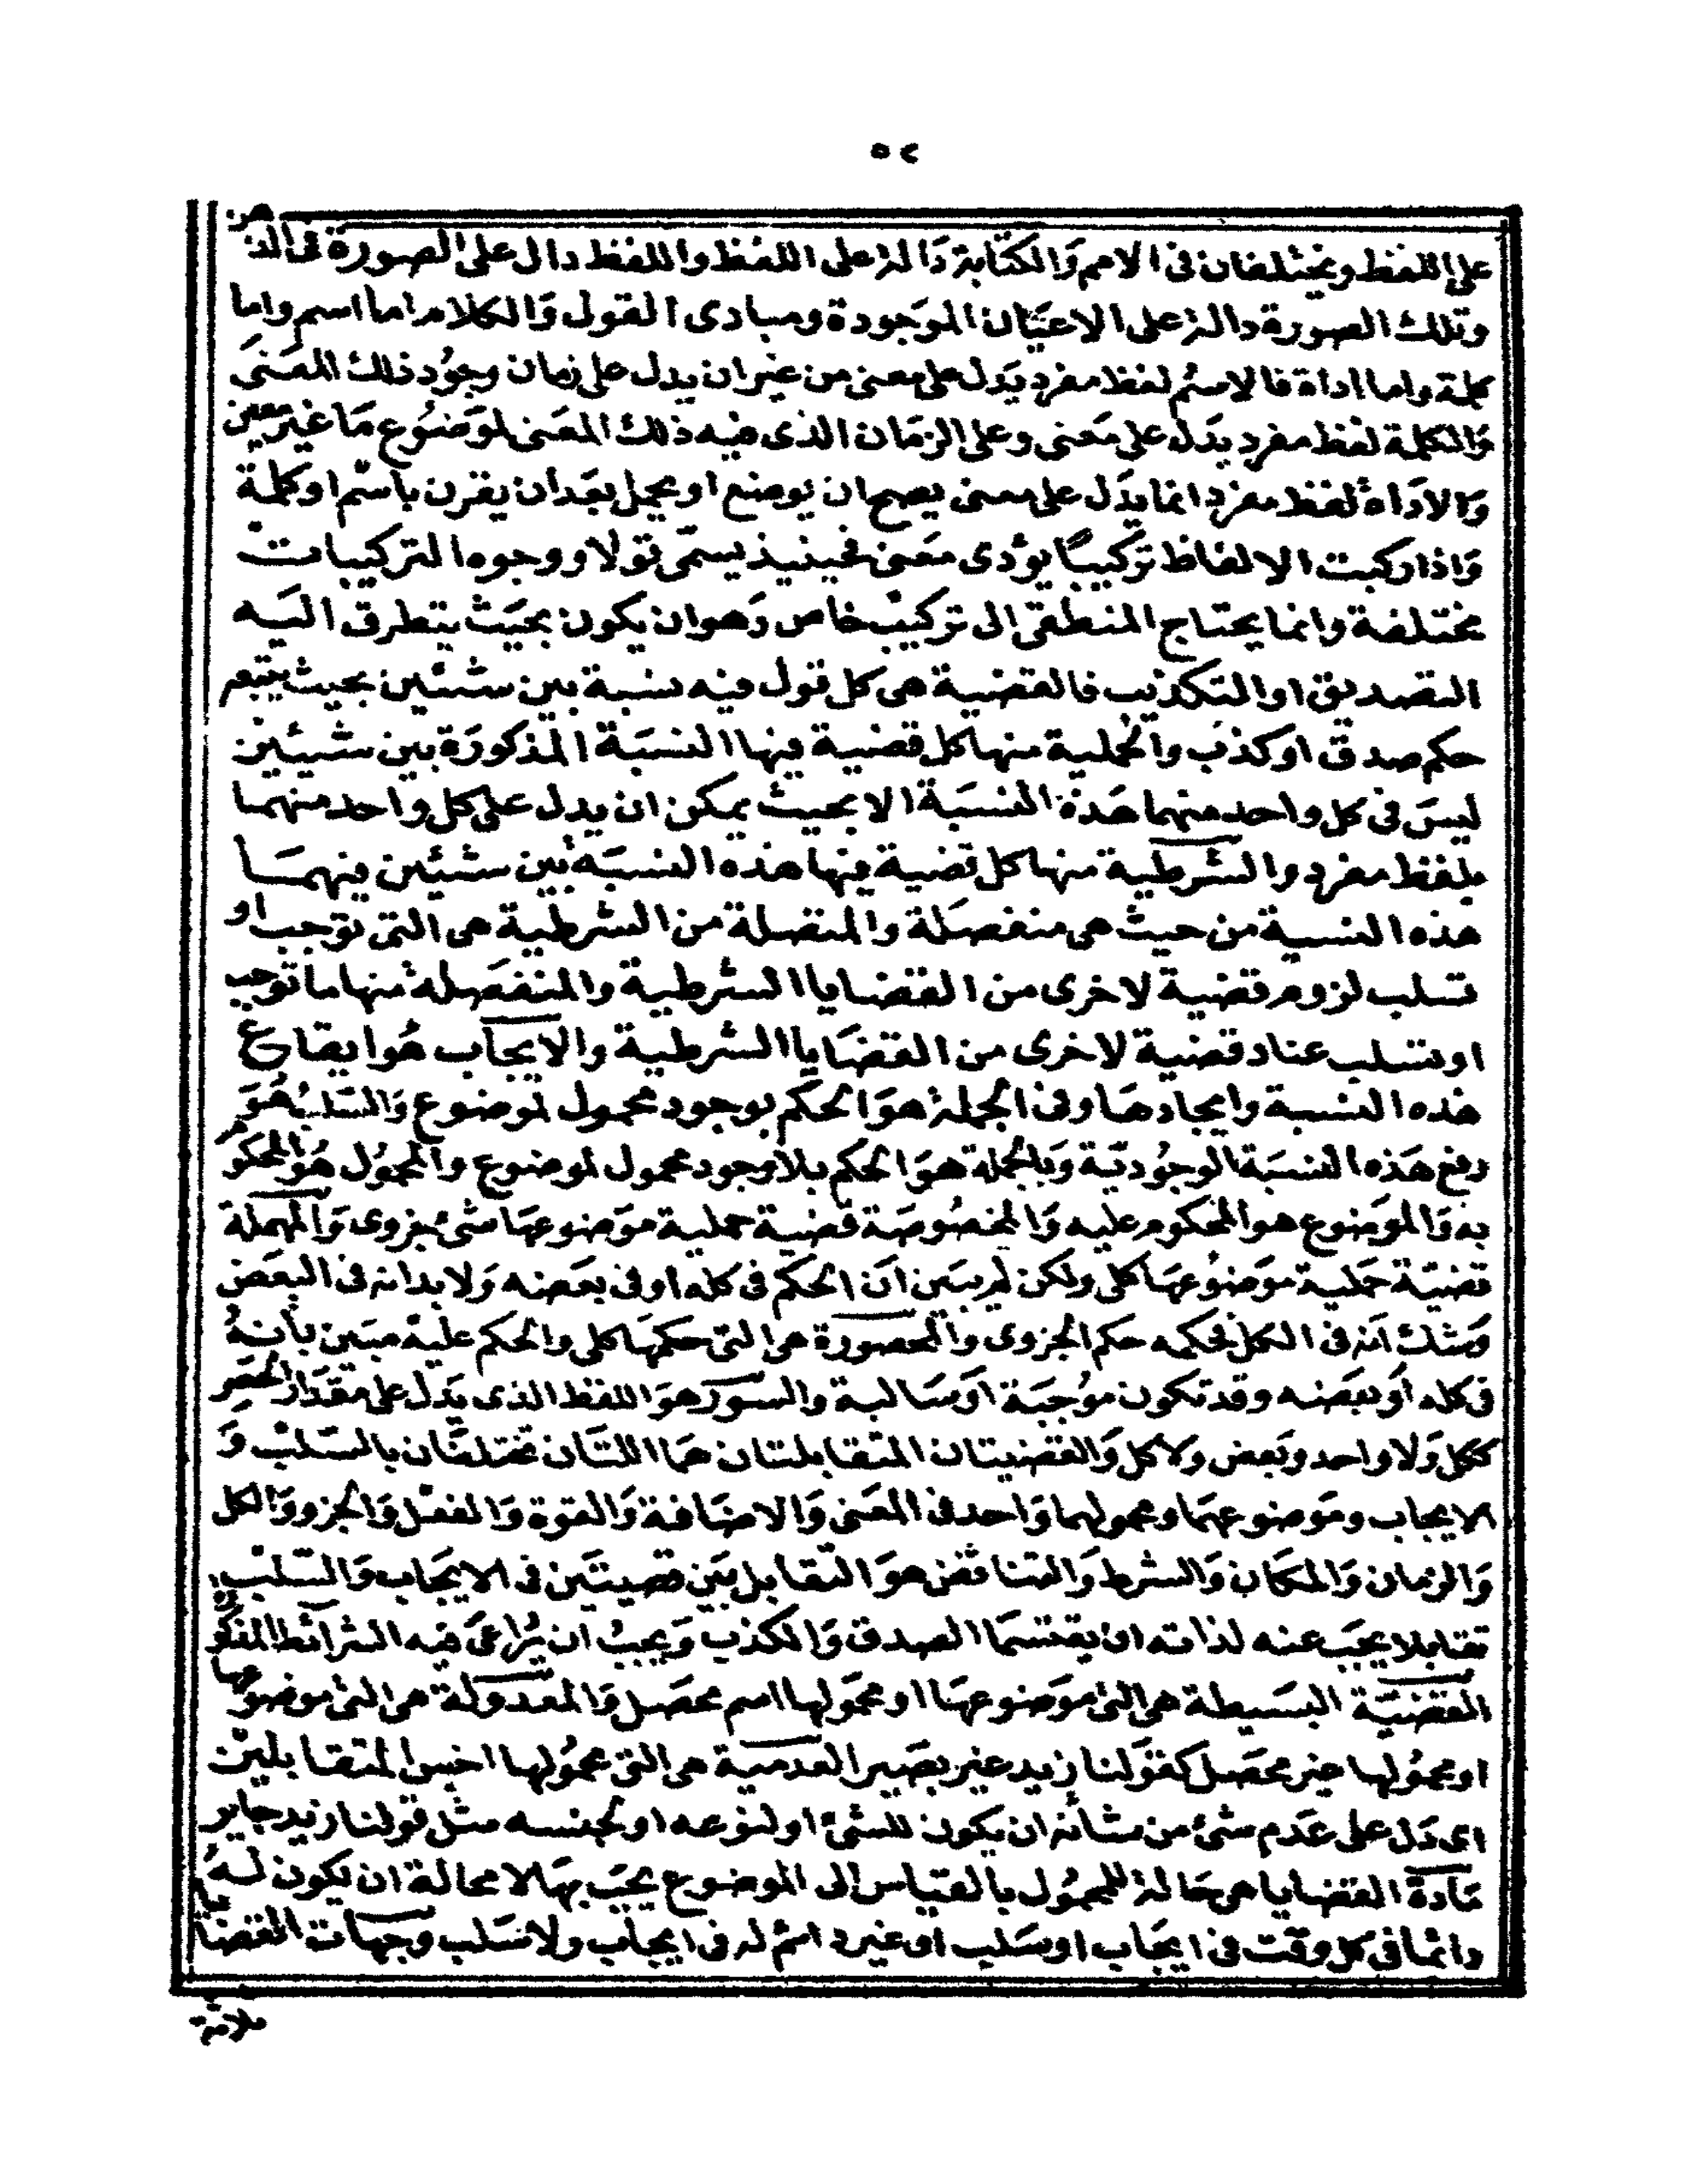 ٥٢
على اللفظ ويختلفان فى الامم والكتابة دالة على اللفظ واللفظ دال على الصورة فى الذهن
وتلك الصورة دالة على الاعيان الموجودة ومبادى القول والكلام اما اسم واما
كلمة واما اداة فالاسم لفظ مفرد يدل على معنى من غير ان يدل على زمان وجود ذلك المعنى
والكلمة لفظ مفرد يدل على معنى وعلى الزمان الذى فيه ذلك المعنى لموضوع ما غير معين
والاداة لفظ مفرد انما يدل على معنى يصح ان يوضع او يحمل بعد ان يقرن باسم او كلمة
واذا ركبت الالفاظ تركيبًا يؤدى معنى فحينيذ يسمى قولا ووجوه التركيبات
مختلفة وانما يحتاج المنطقى الى تركيب خاص وهو ان يكون بحيث يتطرق اليه
التصديق او التكذيب فالقضية هى كل قول فيه نسبة بين شيئين بحيث يتبعه
حكم صدق او كذب والحملية منها كل قضية فيها النسبة المذكورة بين شيئين
ليس فى كل واحد منهما هذه النسبة الا بحيث يمكن ان يدل على كل واحد منهما
بلفظ مفرد والشرطية منها كل قضية فيها هذه النسبة بين شيئين فيهما
هذه النسبة من حيث هى منفصلة والمتصلة من الشرطية هى التى توجب او
تسلب لزوم قضية لاخرى من القضايا الشرطية والمنفصلة منها ما توجب
او تسلب عناد قضية لاخرى من القضايا الشرطية والايجاب هو ايقاع
هذه النسبة وايجادها وفى الجملة هو الحكم بوجود محمول لموضوع والسلب هو
رفع هذه النسبة الوجودية وبالجملة هو الحكم بلا وجود محمول لموضوع والمحمول هو المحكوم
به والموضوع هو المحكوم عليه والمخصوصة قضية حملية موضوعها شئ جزوى والمهملة
قضية حملية موضوعها كلى ولكن لم يبين ان الحكم فى كله او فى بعضه ولا بد انه فى البعض
وشك انه فى الكل فحكمه حكم الجزوى والمحصورة هى التى حكمها كلى والحكم عليه مبين بانه
فى كله او بعضه وقد تكون موجبة او سالبة والسور هو اللفظ الذى يدل على مقدار الحصر
ككل ولا واحد وبعض ولا كل والقضيتان المتقابلتان هما اللتان تختلفان بالسلب و
الايجاب وموضوعهما ومحمولهما واحد فى المعنى والاضافة والقوة والفعل والجزو والكل
والزمان والمكان والشرط والتناقض هو التقابل بين قضيتين فى الايجاب والسلب
تقابلا يجب عنه لذاته ان يقتسما الصدق والكذب ويجب ان يراعى فيه الشرائط المذكورة
القضية البسيطة هى التى موضوعها او محمولها اسم محصل والمعدولة هى التى موضوعها
او محمولها غير محصل كقولنا زيد غير بصير العدمية هى التى محمولها اخس المتقابلين
اى دل على عدم شئ من شأنه ان يكون للشئ او لنوعه او لجنسه مثل قولنا زيد جاير
مادة القضايا هى حالة للمحمول بالقياس الى الموضوع يجب بها لا محالة ان يكون له
دائما فى كل وقت فى ايجاب او سلب او غير دائم له فى ايجاب ولا سلب وجهات القضايا
ثلاثة